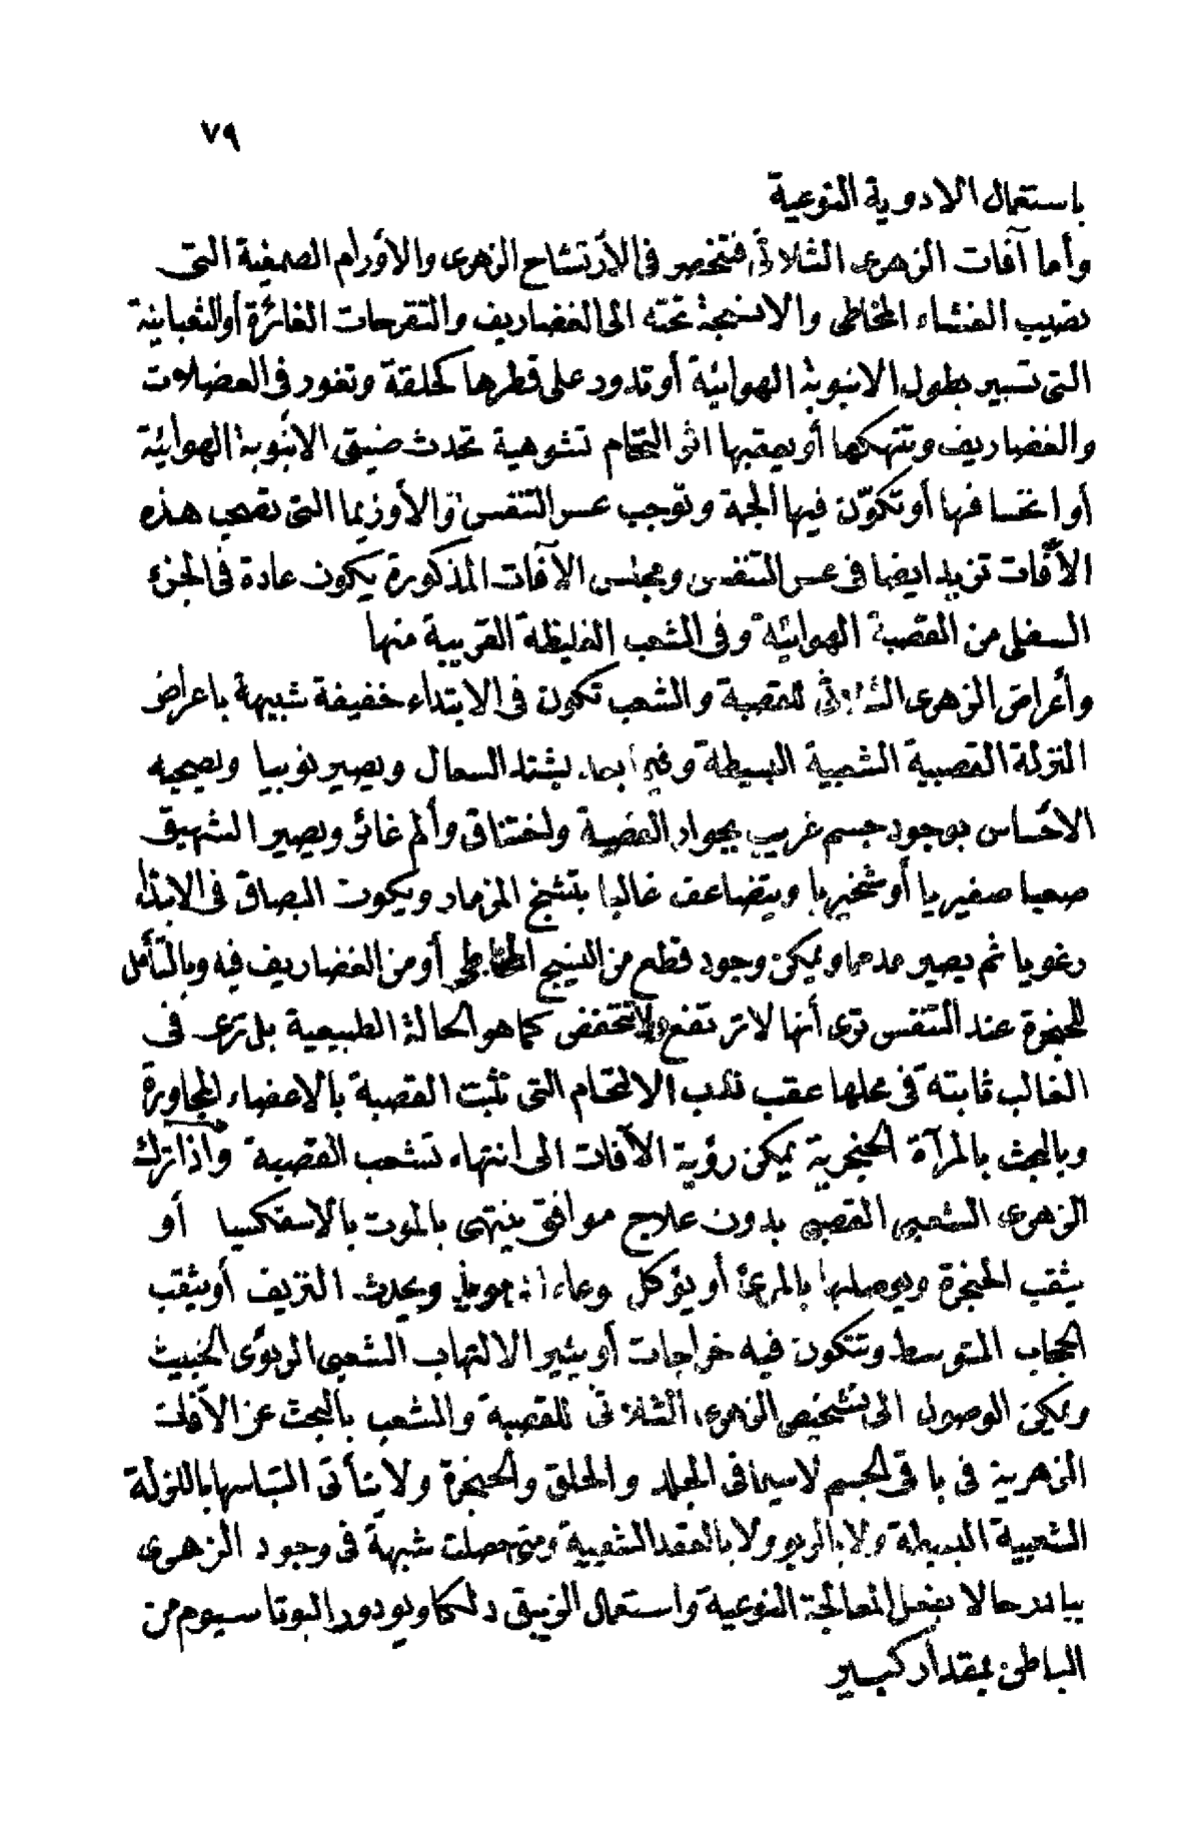 ٧٩
باستعمال الادوية النوعية
وأما آفات الزهرى الثلاثى فتنحصر فى الأرتشاح الزهرى والأورام الصمغية التى
تصيب الغشاء المخاطى والانسجة تحته الى الغضاريف والتقرحات الغائرة أو الثعبانية
التى تسير بطول الانبوبة الهوائية أو تدور على قطرها كحلقة وتغور فى العضلات
والغضاريف وتنهكها أو يعقبها اثر التحام تشوهية تحدث ضيق الانبوبة الهوائية
أو انخسافها أو تكوّن فيها ألجمة وتوجب عسر التنفس والأوزيما التى تصحب هذه
الآفات تزيد ايضا فى عسر التنفس ومجلس الآفات المذكورة يكون عادة فى الجزء
السفلى من القصبة الهوائية وفى الشعب الغليظة القريبة منها
وأعراض الزهرى الثلاثى للقصبة والشعب تكون فى الابتداء خفيفة شبيهة باعراض
النزلة القصبية الشعبية البسيطة وفيما بعد يشتد السعال ويصير نوبيا ويصحبه
الاحساس بوجود جسم غريب بجوار القصبة ولختناق وألم غائر ويصير الشهيق
صعبا صفيريا أو شخيريا ويتضاعف غالبا بتشنج المزمار ويكون البصاق فى الابتداء
رغويا ثم يصير مدمما ويمكن وجود قطع من النسيج المخاطى أو من الغضاريف فيه وبالتأمل
للحنجرة عند التنفس ترى أنها لا ترتفع ولا تنخفض كما هو الحالة الطبيعية بل ترى فى
الغالب ثابتة فى محلها عقب ندب الالتحام التى تثبت القصبة بالاعضاء المجاورة
وبالبحث بالمرآة الحنجرية يمكن رؤية الآفات الى انتهاء تشعب القصبة واذا ترك
الزهرى الشعبى القصبى بدون علاج موافق ينتهى بالموت بالاسفكسيا أو
يثقب الحنجرة ويوصلها بالمرئ أو يؤكل وعاء ويحدث النزيف أو يثقب
الحجاب المتوسط وتتكون فيه خراجات أو يثير الالتهاب الشعبى الربوى الخبيث
ويمكن الوصول الى تشخيص الزهرى الثلاثى للقصبة والشعب بالبحث عن الآفات
الزهرية فى باقى الجسم لاسيما فى الجلد والحلق والحنجرة ولا يتأتى التباسها بالنزلة
الشعبية البسيطة ولا بالربو ولا بالعقد الشعبية ومتى حصلت شبهة فى وجود الزهرى
يبادر حالا بفعل المعالجة النوعية واستعمال الزيبق دلكا ويودور البوتاسيوم من
الباطن بمقدار كبير